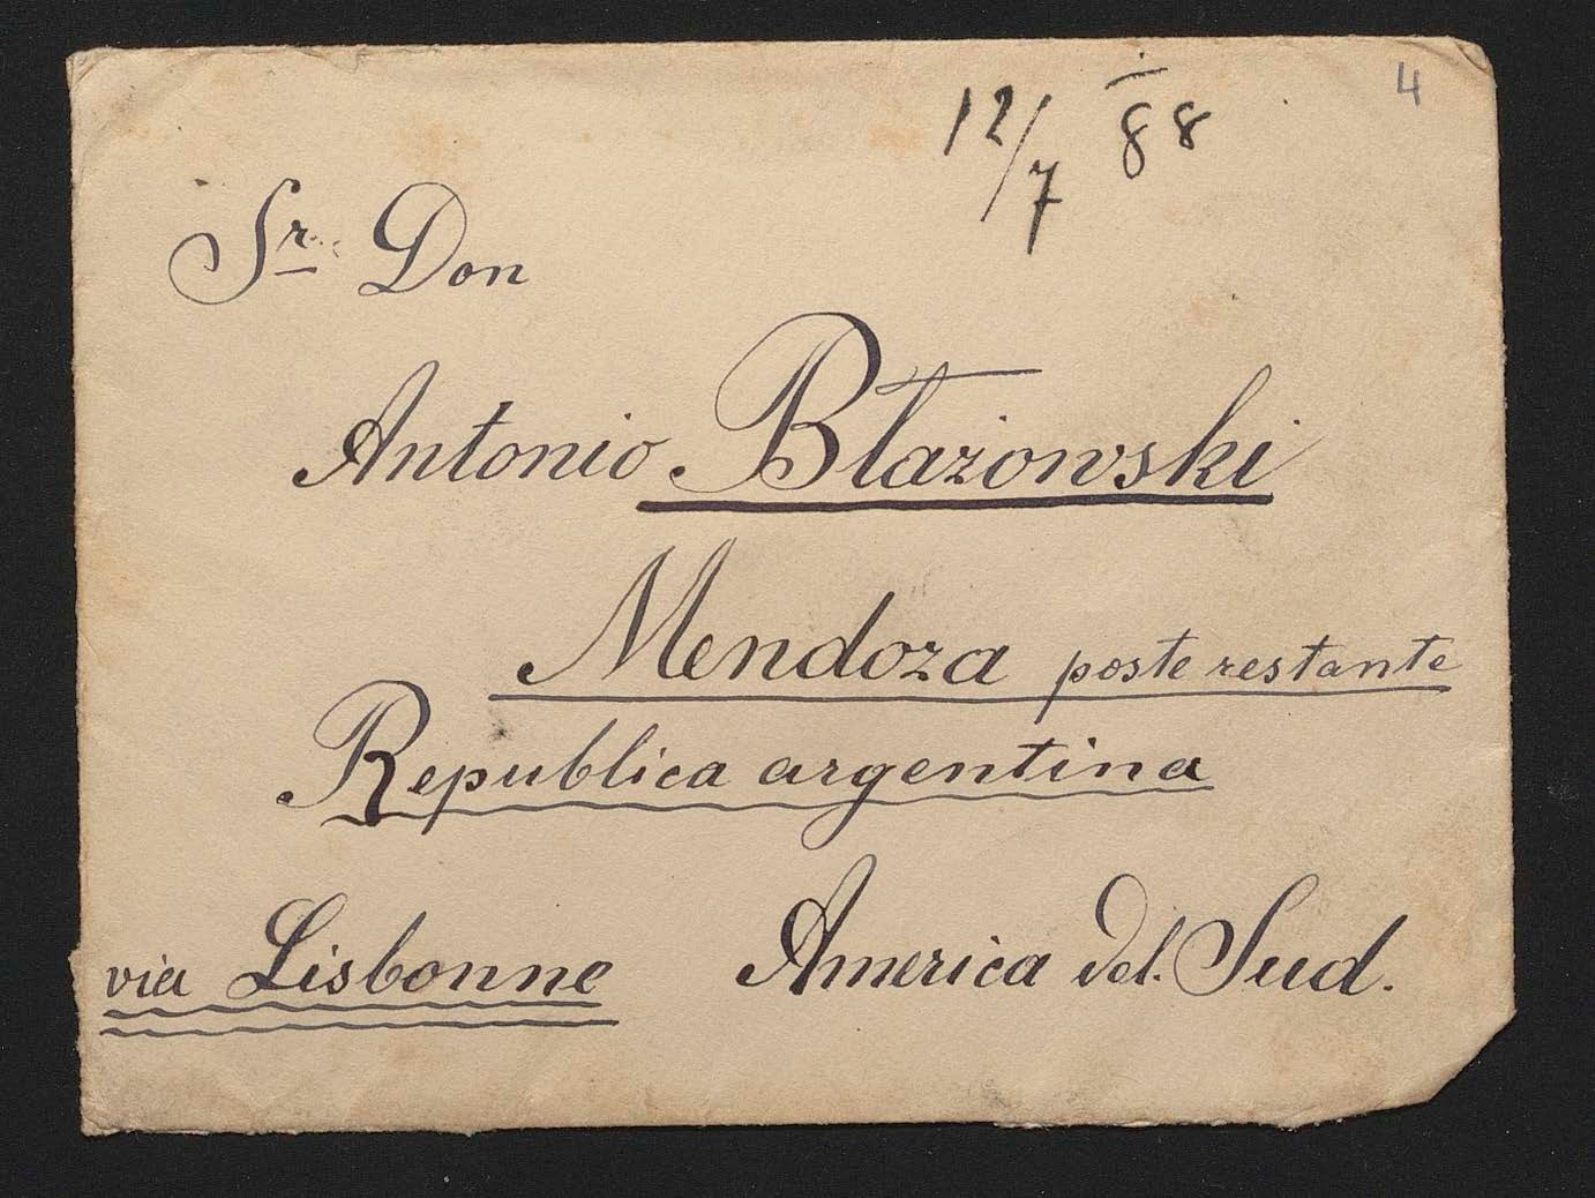 4
12/7 88
Sr Don
Antonio Błażowski
Mendoza poste restante
Republica argentina
via Lisbonne America del. Sud.